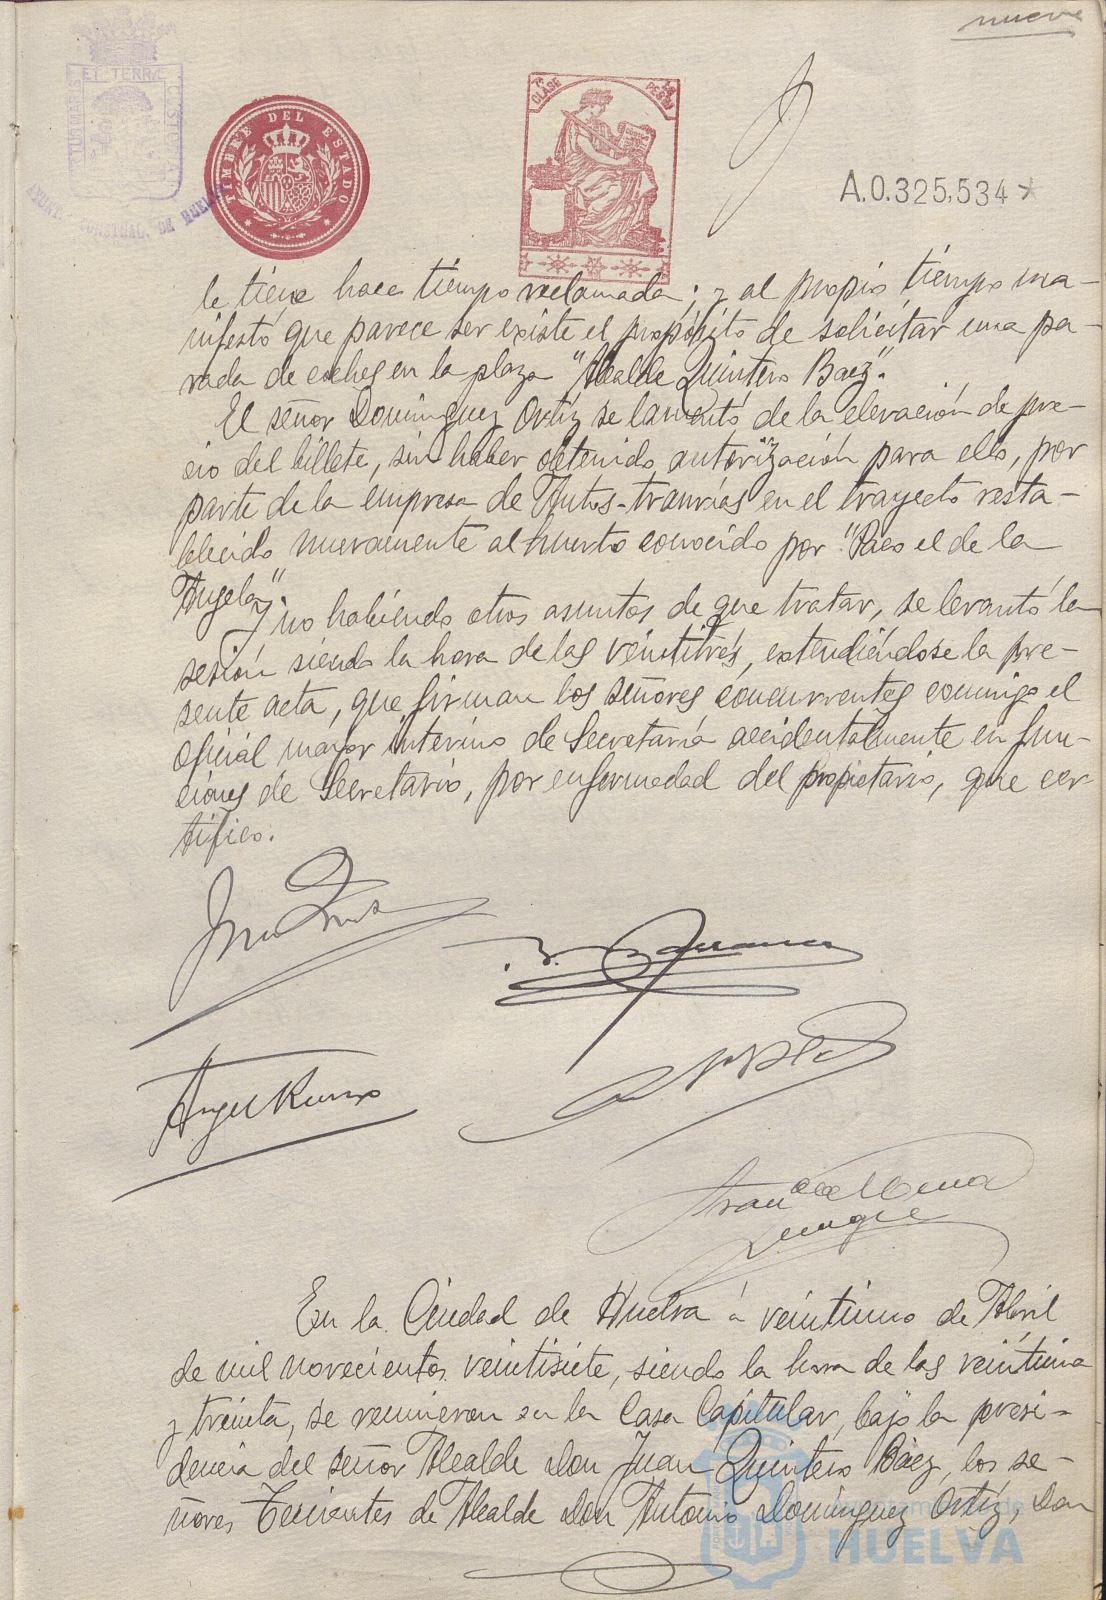 nueve
ET TERRÆ
CUSTODIA
AYUNT. CONSTUAL. DE HUELVA
TIMBRE DEL ESTADO
7ª CLASE
PESETA
A.0.325,534*
le tiene hace tiempo reclamada; y al propio tiempo ma-
nifestó que parece ser existe el propósito de solicitar una pa-
rada de coches en la plaza "Alcalde Quintero Baez".
El señor Dominguez Ortíz se lamentó de la elevación de pre-
cio del billete, sin haber obtenido autorización para ello, por
parte de la empresa de Autos-tranvías en el trayecto resta-
blecido nuevamente al huerto conocido por "Paco el de la
Angela".
Y no habiendo otros asuntos de que tratar, se levantó la
sesión siendo la hora de las veintitrés, extendiéndose la pre-
sente acta, que firman los señores concurrentes conmigo el
oficial mayor interino de Secretaría accidentalmente en fun-
ciones de Secretario, por enfermedad del propietario, que cer-
tifico.
Angel
En la Ciudad de Huelva á veintiuno de Abril
de mil novecientos veintisiete, siendo la hora de las veintiuna
y treinta, se reunieron en la Casa Capitular, bajo la presi-
dencia del señor Alcalde Don Juan Quintero Báez, los se-
ñores Tenientes de Alcalde Don Antonio Domínguez Ortíz, Don
Ayuntamiento de
HUELVA